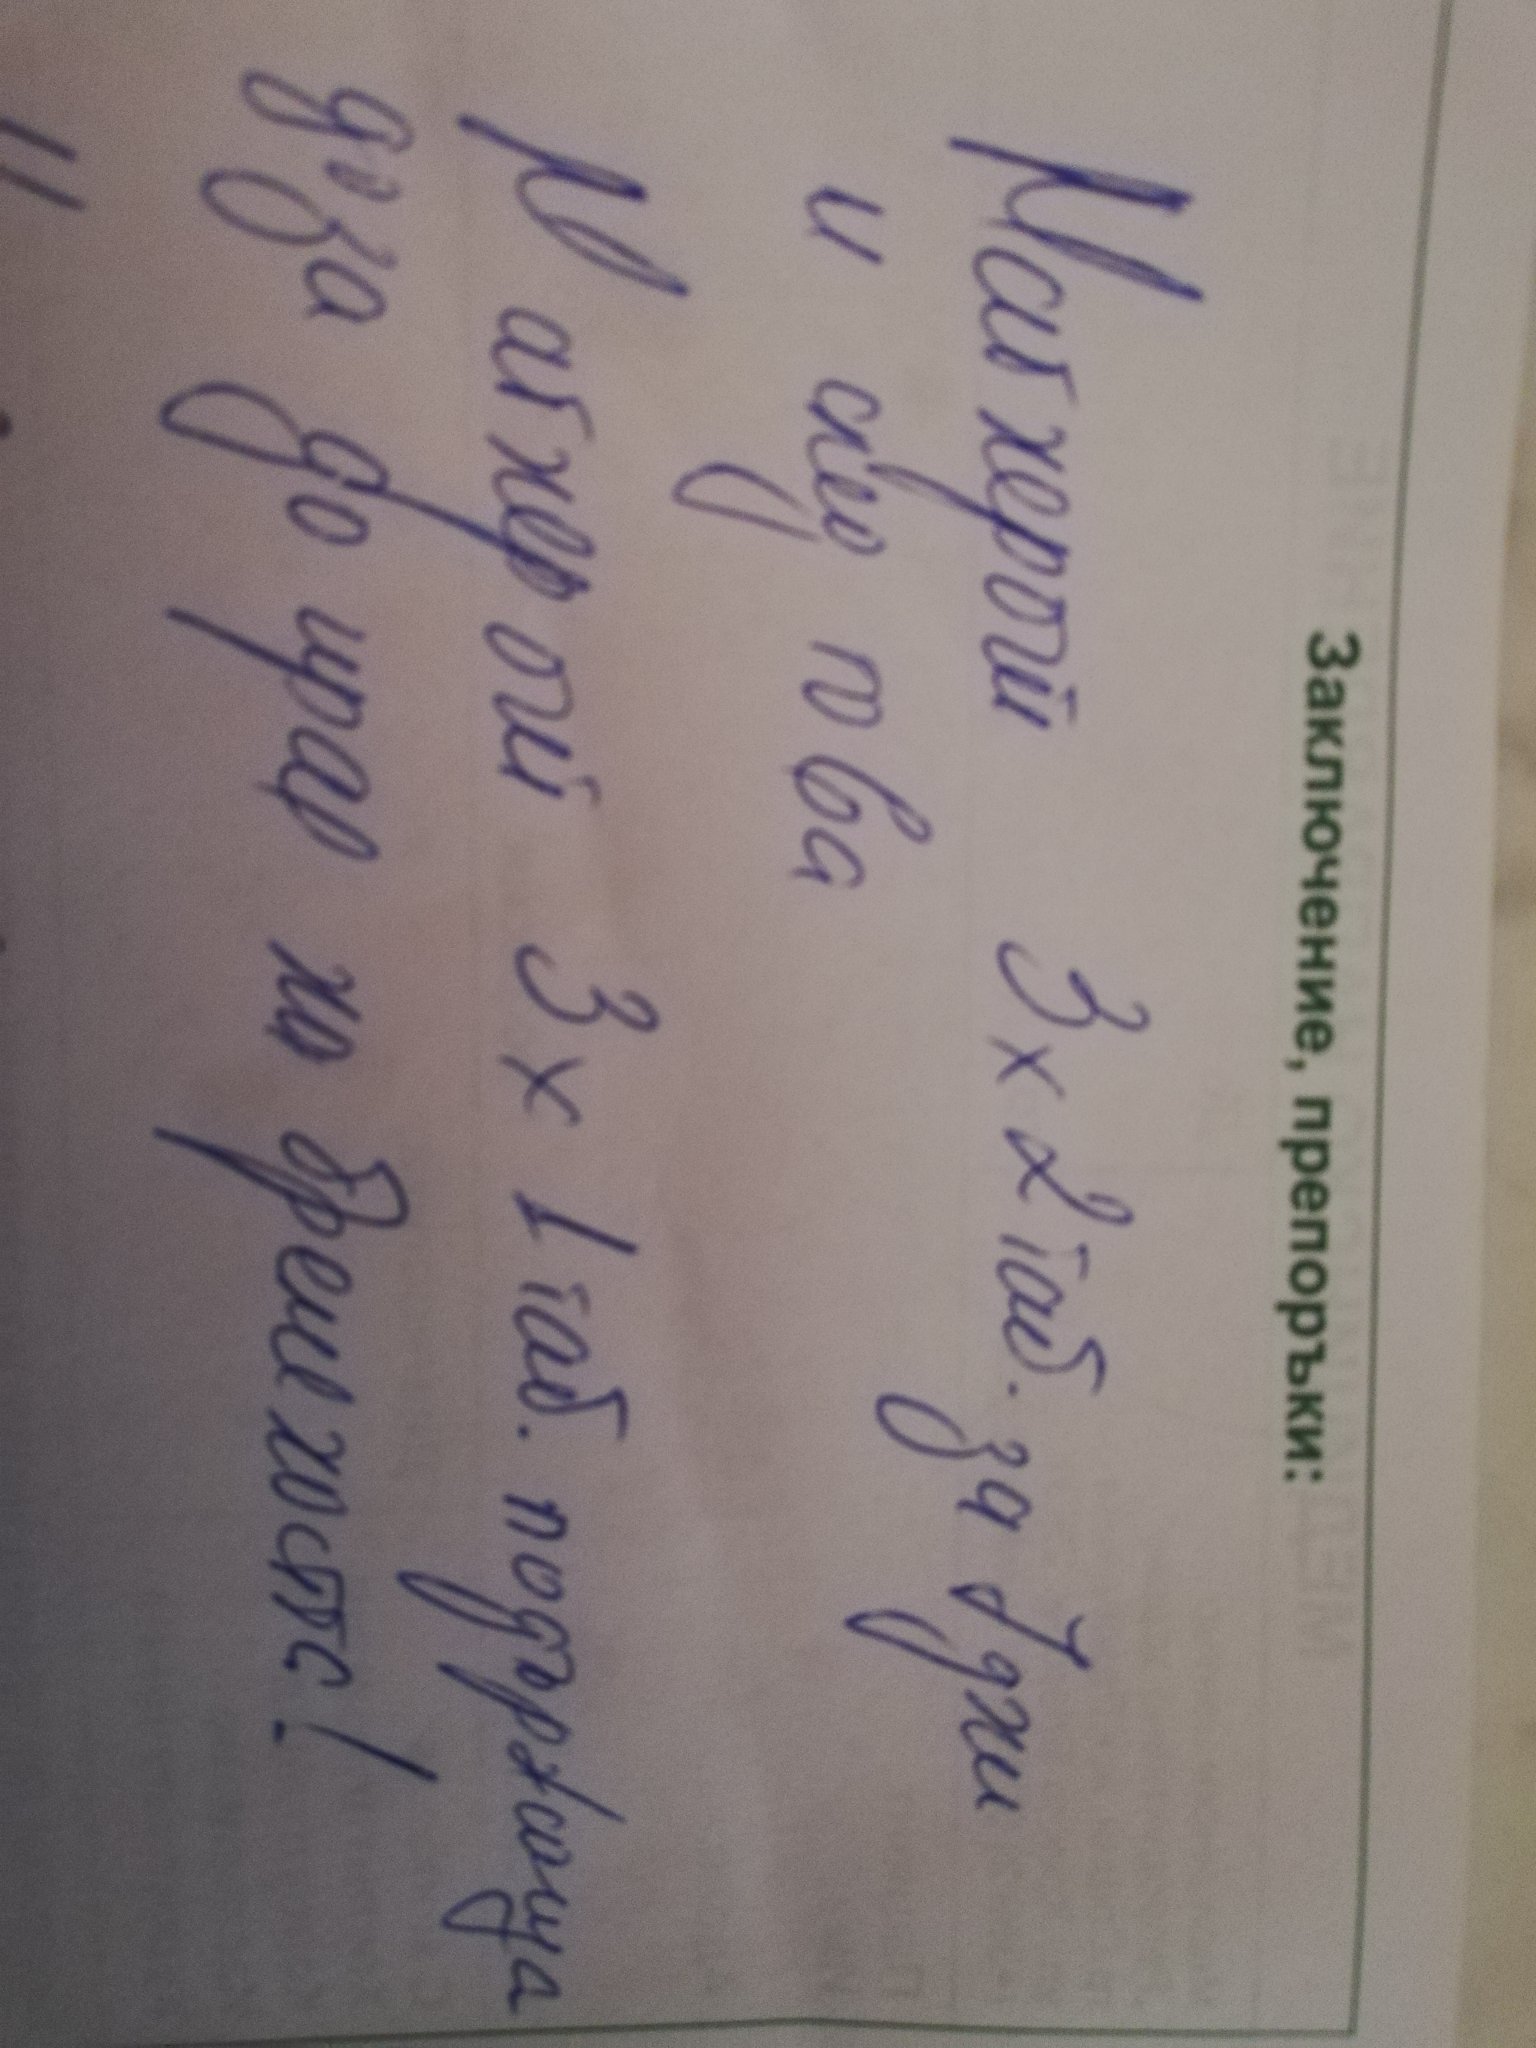 Заключение, препоръки:
Магнерот 3 x 2 таб. за 7 дни
и след това
Магнерот 3 x 1 таб. поддържаща
доза до края на бременността!